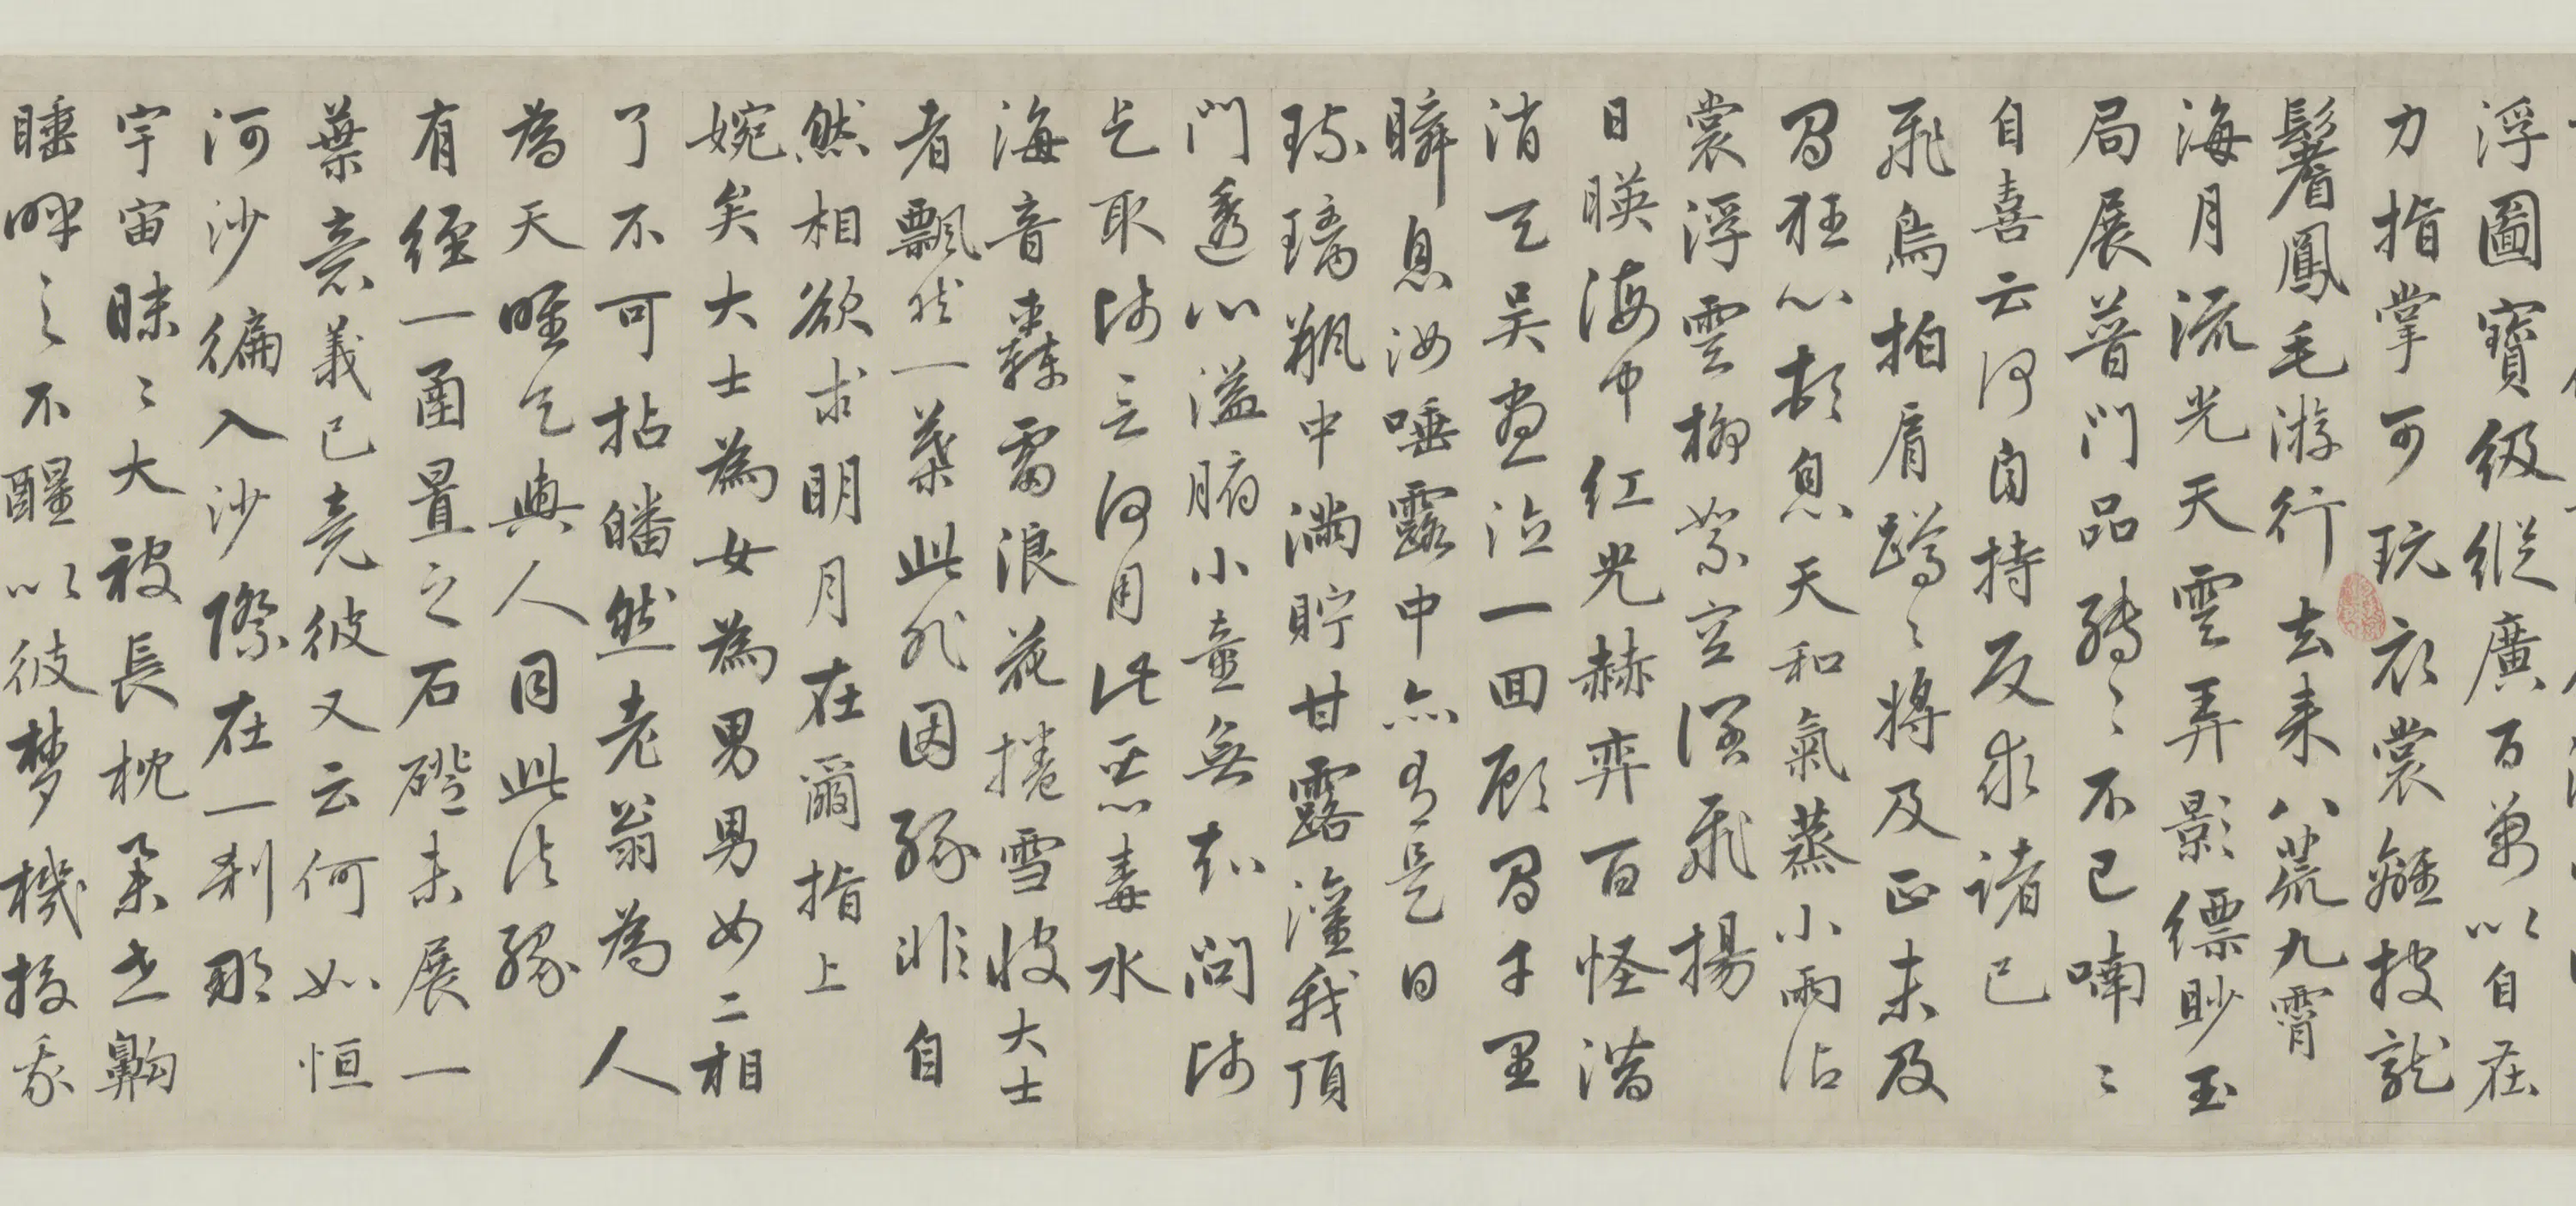 浮圖寶級縱廣百萬以自在
力指掌可玩衣裳離披龍
鬐鳳毛游行去來八荒九霄
海月流光天雲弄影縹眇玉
局展普門品轉〻不已喃〻
自喜云何自持反求諸己
飛鳥拍肩蹲〻將及正未及
曷狂心頓息天和氣蒸小雨沾
裳浮雲柳絮空濛飛揚
日暎海中紅光赫弈百怪潛
消天吴盡泣一回顧曷千里
瞬息汝唾露中亦有是日
琉璃瓶中滿貯甘露灌我頂
門透心溢腑小童無知問師
乞取師言何用此惡毒水
海音轟雷浪花捲雪彼大士
者飄然一葉此非因緣非自
然相欲求明月在爾指上
婉矣大士為女為男男女二相
了不可拈皤然老翁為人
為天唯乞與人同此法緣
有經一函置之石磴未展一
葉意義已竟彼又云何如恒
河沙徧入沙際在一刹那
宇宙昧〻大被長枕舉世齁
睡呼之不醒以彼梦機授我